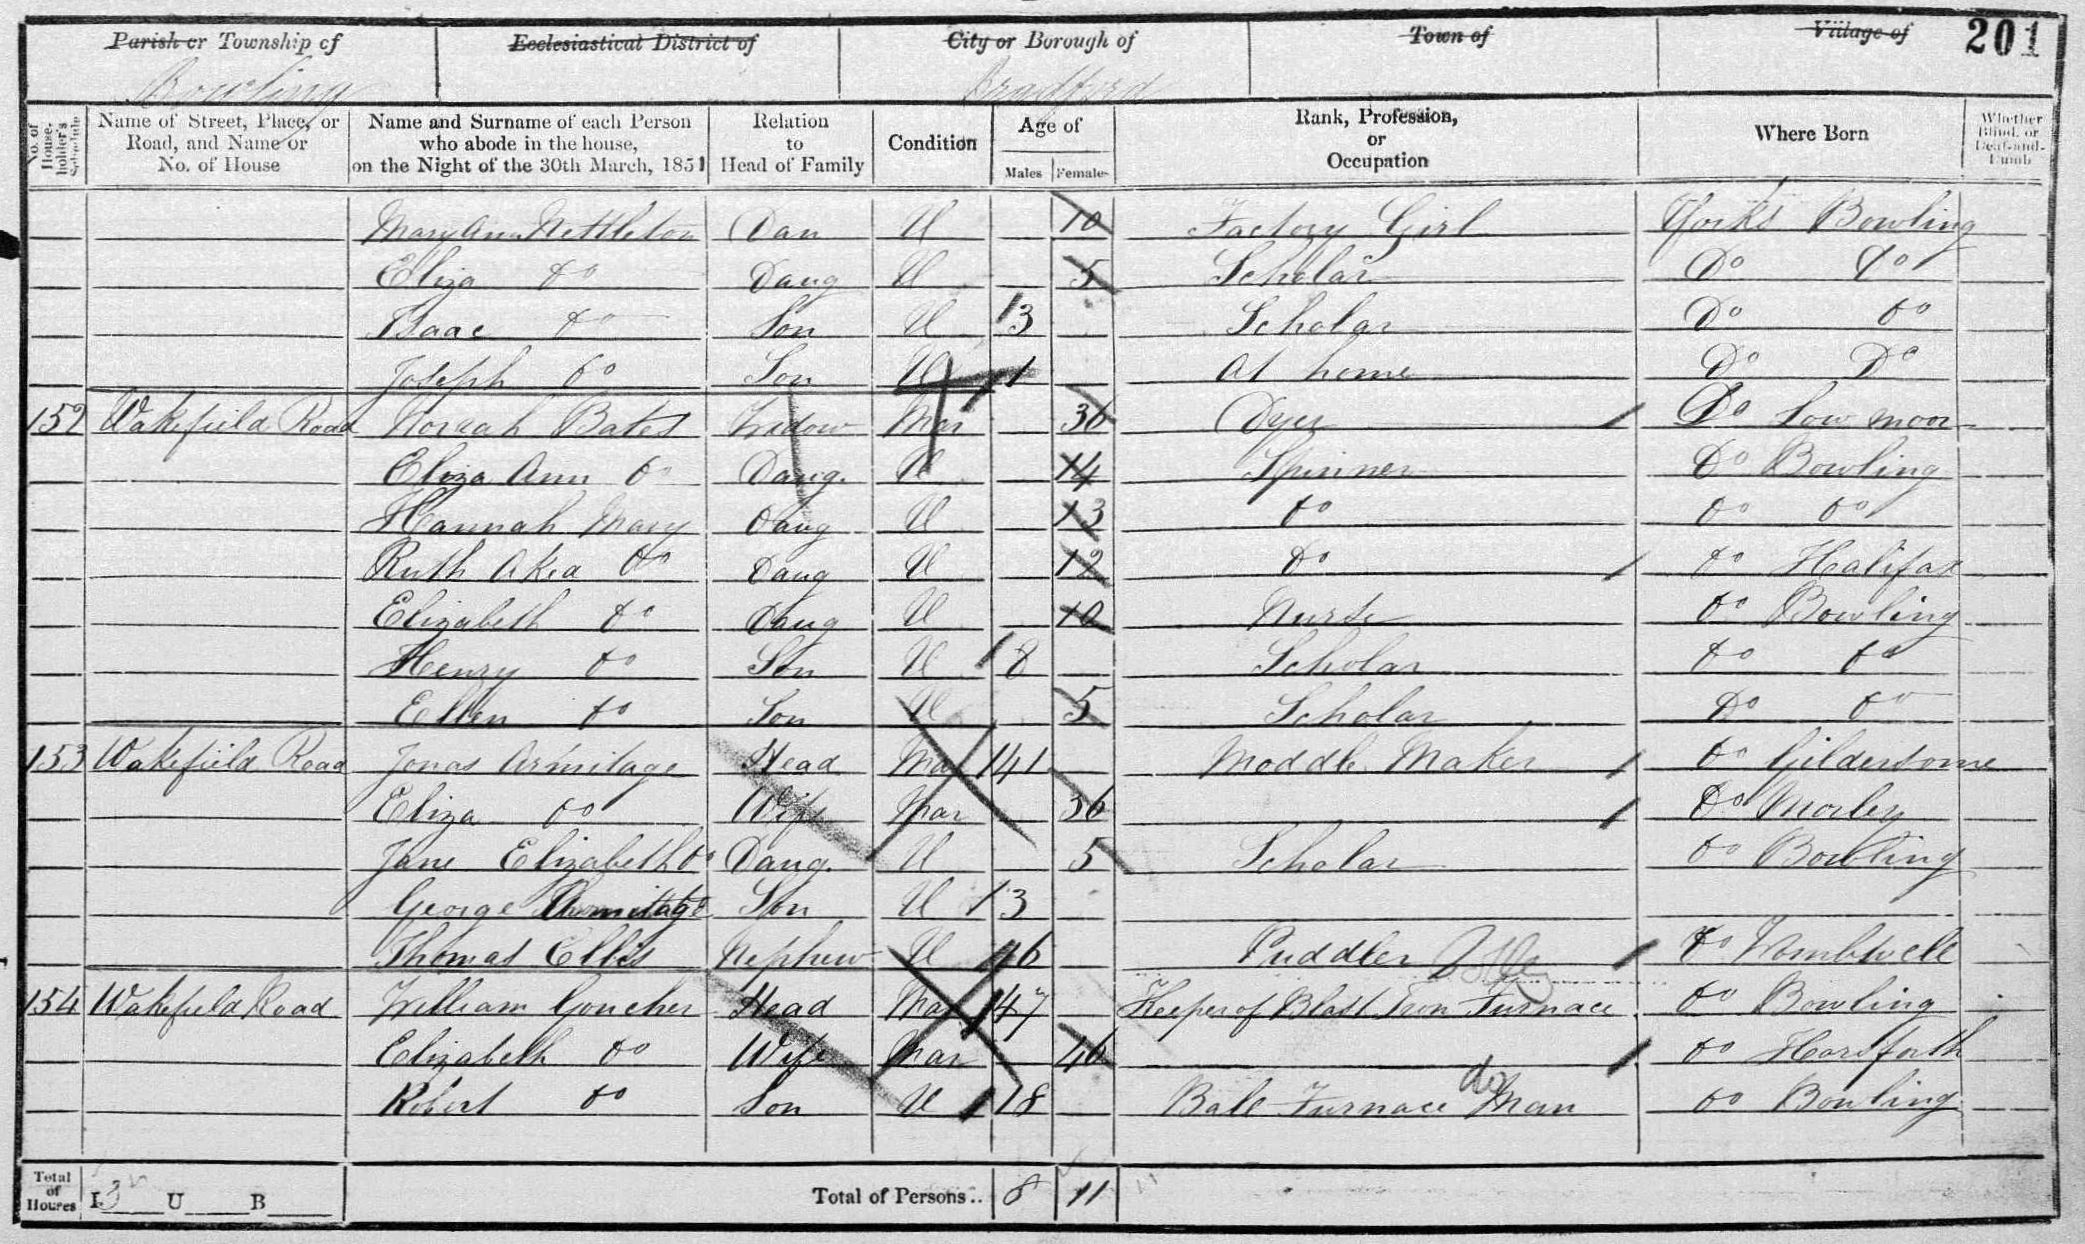 Parish or Township of Ecclesiastical District of City or Borough of Town of Village of 201
Bowling Bradford
No. of House-holder's Schedule Name of Street, Place, or Road, and Name or No. of House Name and Surname of each Person who abode in the house, on the Night of the 30th March, 1851 Relation to Head of Family Condition Age of Males Females Rank, Profession, or Occupation Where Born Whether Blind, or Deaf-and-Dumb
Mary Ann Nettleton Dau U 10 Factory Girl Yorks Bowling
Eliza Do Daug U 5 Scholar Do Do
Isaac Do Son U 3 Scholar Do Do
Joseph Do Son U 1 At home Do Do
152 Wakefield Road Bates Widow Mar 36 Dyer Do Low moor
Eliza Ann Do Daug. U 14 Spinner Do Bowling
Hannah Mary Daug U 13 Do Do Do
Ruth Aked Do Daug U 12 Do Do Halifax
Elizabeth Do Daug U 10 Nurse Do Bowling
Henry Do Son U 8 Scholar Do Do
Ellen Do Son U 5 Scholar Do Do
153 Wakefield Road Jonas Armitage Head Mar 41 Moddle Maker Do Gildersome
Eliza Do Wife Mar 36 Do Morley
Jane Elizabeth Do Daug. U 5 Scholar Do Bowling
George Armitage Son U 3
Thomas Ellis Nephew U 16 Puddler Do Wombwell
154 Wakefield Road William Goucher Head Mar 47 Keeper of Blast Iron Furnace Do Bowling
Elizabeth Do Wife Mar 46 Do Horsforth
Robert Do Son U 18 Ball Furnace Man do Do Bowling
Total of Houses I 3 U B Total of Persons.. 8 11